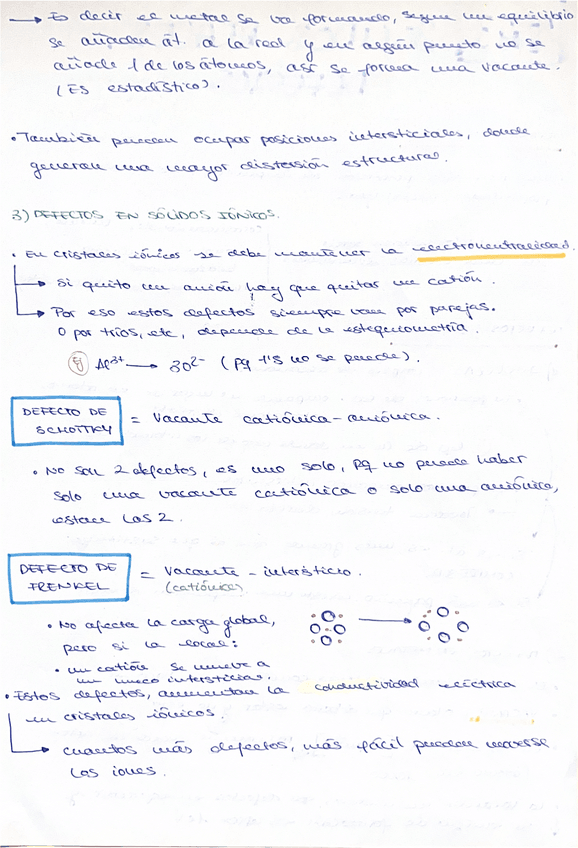 → Es decir el metal se va formando, según un equilibrio
se añaden át. a la red y en algún punto no se
añade 1 de los átomos, así se forma una vacante.
(Es estadístico).
• También pueden ocupar posiciones intersticiales, donde
generan una mayor distorsión estructural.
3) DEFECTOS EN SÓLIDOS IÓNICOS.
• En cristales iónicos se debe mantener la electroneutralidad.
→ Si quito un anión hay que quitar un catión.
→ Por eso estos defectos siempre van por parejas.
O por tríos, etc, depende de la estequiometría.
Ej Al³⁺ → 3O²⁻ (pq 1'5 no se puede).
DEFECTO DE
SCHOTTKY = Vacante catiónica-aniónica.
• No son 2 defectos, es uno solo, pq no puede haber
solo una vacante catiónica o solo una aniónica,
están las 2.
DEFECTO DE
FRENKEL = Vacante - intersticio.
(catiónica)
• No afecta la carga global,
pero si la local:
• un catión se mueve a
un hueco intersticial.
• Estos defectos, aumentan la conductividad eléctrica
en cristales iónicos.
→ cuantos más defectos, más fácil pueden moverse
los iones.